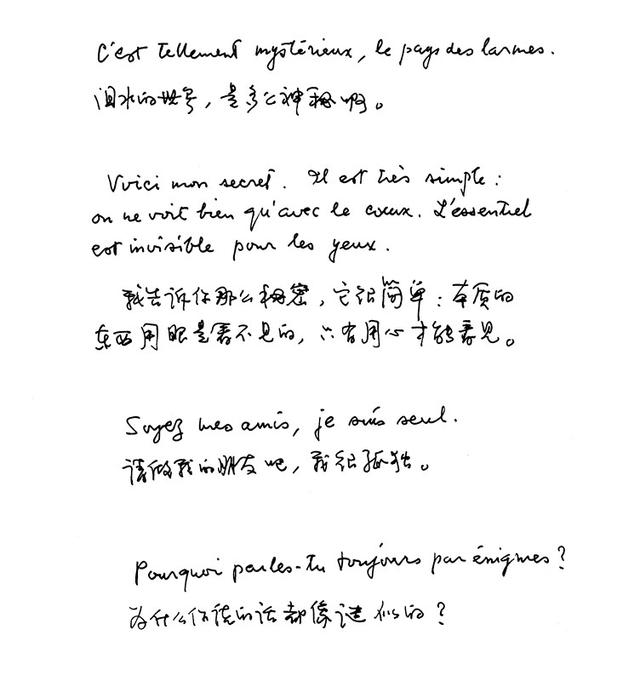 C'est tellement mystérieux, le pays des larmes.
泪水的世界，是多么神秘啊。
Voici mon secret. Il est très simple :
on ne voit bien qu'avec le cœur. L'essentiel
est invisible pour les yeux.
我告诉你那个秘密，它很简单：本质的
东西用眼是看不见的，只有用心才能看见。
Soyez mes amis, je suis seul.
请做我的朋友吧，我很孤独。
Pourquoi parles-tu toujours par énigmes ?
为什么你说的话都像谜似的？